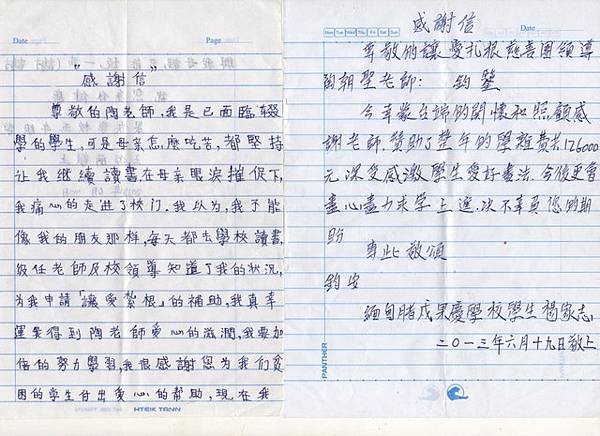 Date
Page.
"感謝信"
尊敬的陶老師,我是已面臨輟
學的學生,可是母亲怎麼吃苦,都堅持
让我继續讀書在母亲眼淚摧促下,
我痛心的走進了校门.我以为,我不能
像我的朋友那样,每天都去學校讀書,
級任老師及校領導知道了我的状况,
为我申請「讓愛紮根」的補助,我真幸
運获得到陶老師愛心的滋潤,我要加
倍的努力學習,我很感謝您为我们贫
困的学生付出愛心的帮助,現在我
HTEIK TANN
感謝信
Mon Tue Wed Thu Fri Sat Sun
Date
尊敬的讓愛扎根慈善團領導
的朝聖老師: 鈞鑒
今年蒙台端的関懷和照顧感
謝老師,贊助了整年的學雜費共126000
元.深受感激,學生愛好書法.今後更會
盡心盡力求學上進.决不辜負您的期
盼
専此敬頌
鈞安
緬甸腊戍果慶學校學生楊家志
二〇一三年六月十九日敬上
PANTHER